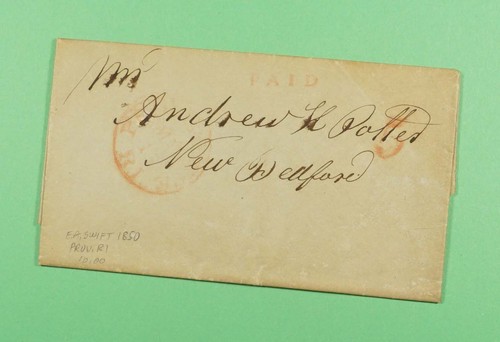 PAID
Mr
Andrew K Potter
5
New Bedford
E.G. SWIFT 1850
PROV. RI
10.00